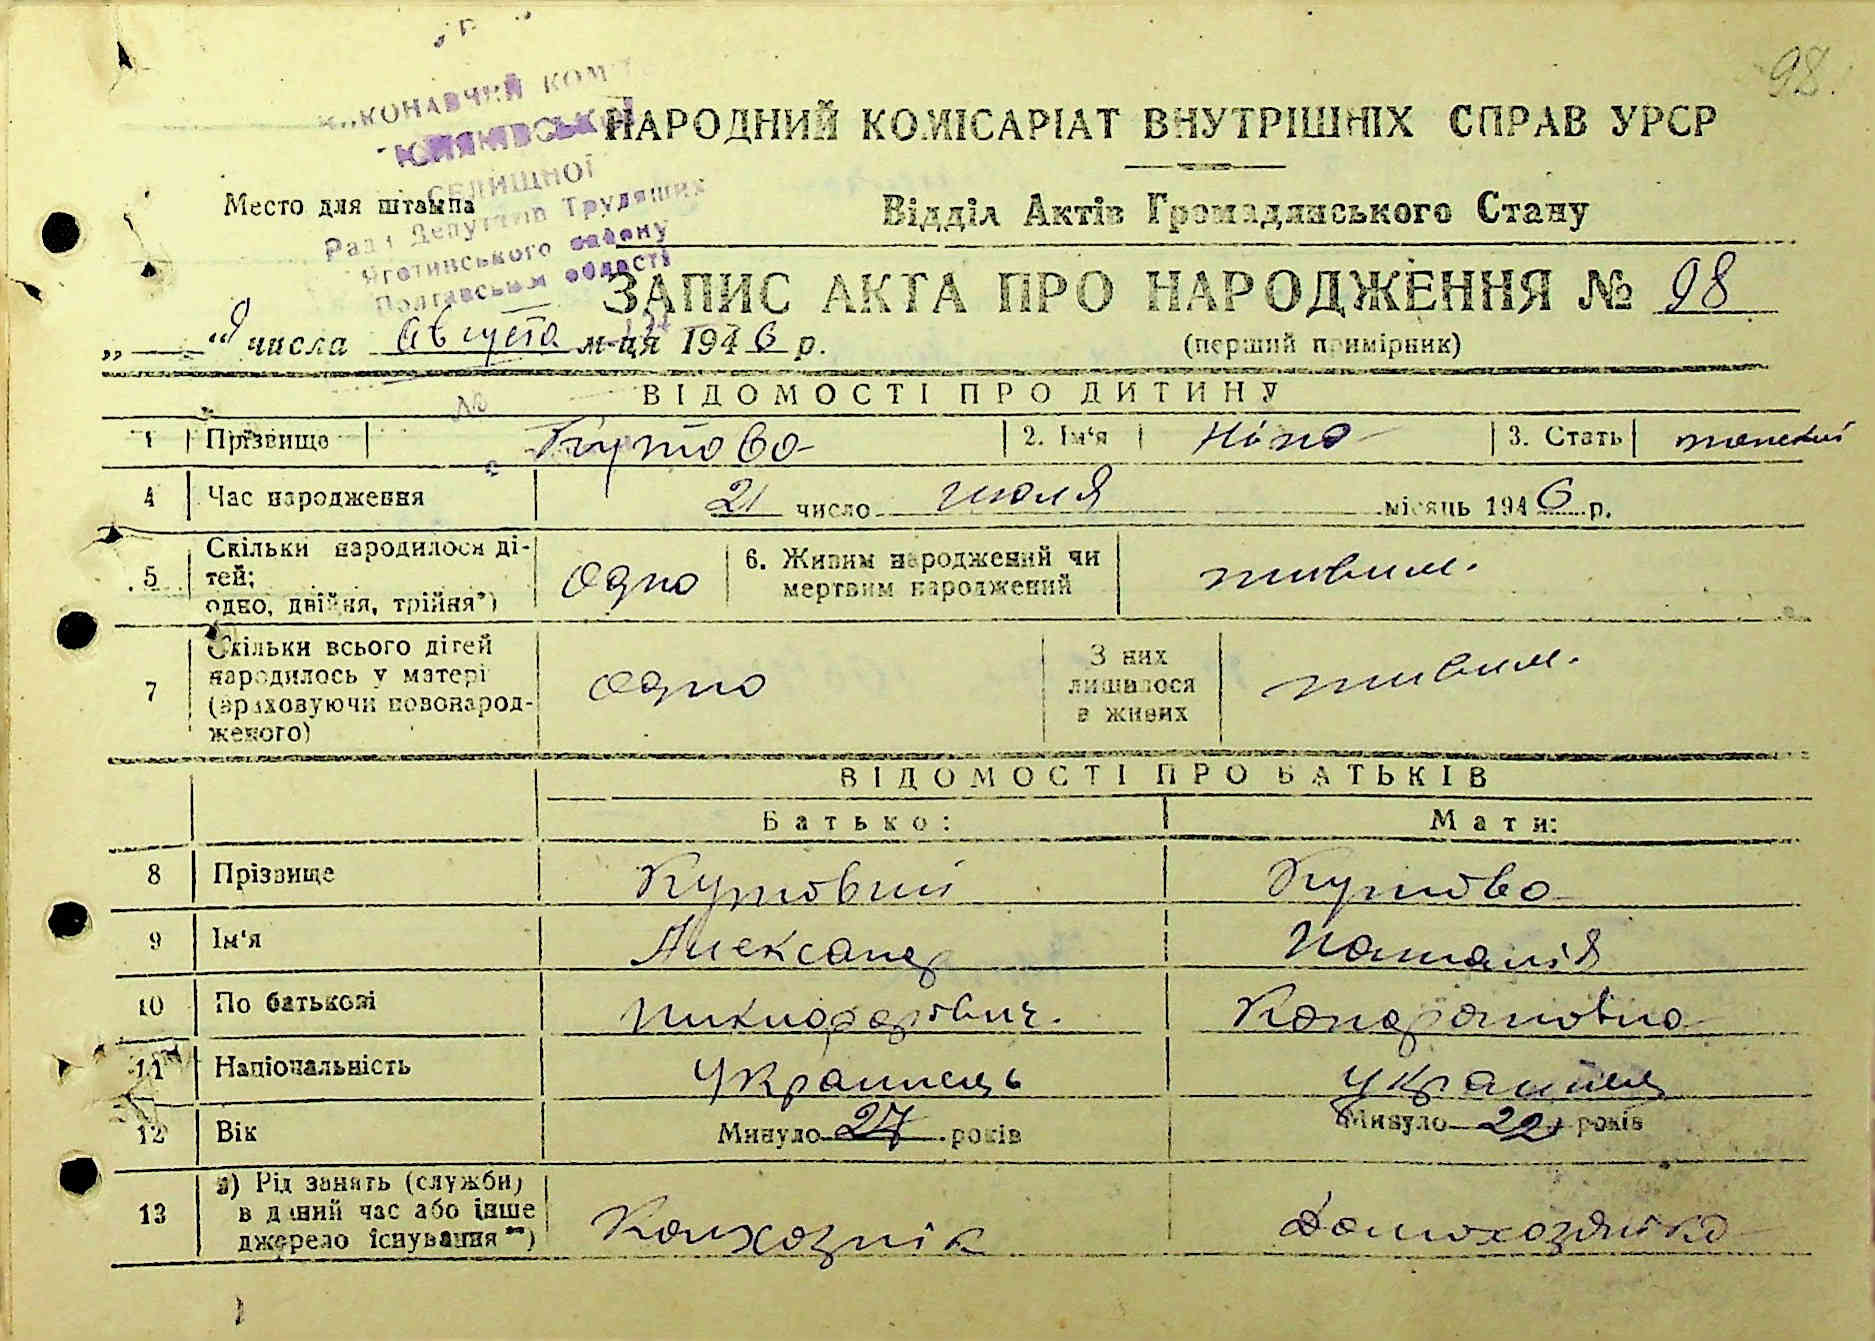 98.
КОНАВЧИЙ КОМ
СЕЛИЩНОЇ
Ради Депутатів Трудящих
Яготинського району
Полтавської області
НАРОДНИЙ КОМІСАРІАТ ВНУТРІШНІХ СПРАВ УРСР
Место для штампа
Відділ Актів Громадянського Стану
ЗАПИС АКТА ПРО НАРОДЖЕННЯ № 98
„ 9 “ числа августа м-ця 1946 р.
(перший примірник)
ВІДОМОСТІ ПРО ДИТИНУ
1 Прізвище Кутова 2. Ім‘я Ніна 3. Стать
4 Час народження 21 число июля місяць 1946 р.
5 Скільки народилося ді-
тей;
одно, двійня, трійня*) одно 6. Живим народжений чи
мертвим народжений живим.
7 Скільки всього дітей
народилось у матері
(враховуючи новонарод-
женого) одно З них
лишилося
в живих живим.
ВІДОМОСТІ ПРО БАТЬКІВ
Батько: Мати:
8 Прізвище Кутовий Кутова
9 Ім‘я Александр Наталія
10 По батькові Никифорович. Кондратовна
11 Національність Українець
12 Вік Минуло 27 років Минуло 22 років
13 а) Рід занять (служби)
в даний час або інше
джерело існування**) Колхознік Домохозяйка